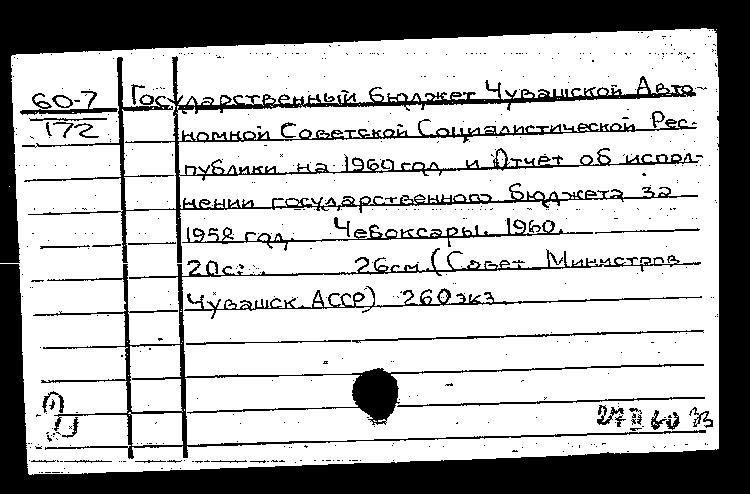 60-7
172
Государственный бюджет Чувашской Авто-
номной Советской Социалистической Рес-
публики на 1960 год и Отчет об испол-
нении государственного бюджета за
1958 год. Чебоксары. 1960.
20с. 26см. (Совет Министров
Чувашск. АССР) 260 экз.
27 II 60